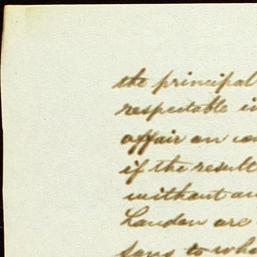 the principal
respectable
affair on
if the result
without
Landon are
sons to